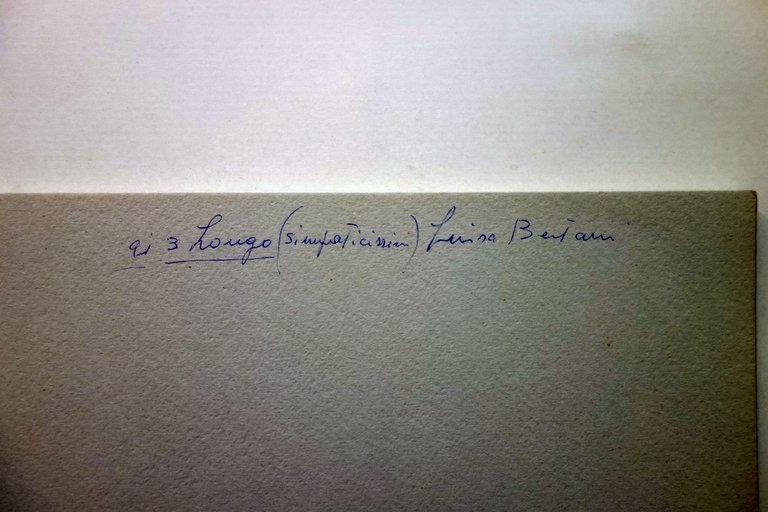 ai 3 Longo (simpaticissimi) Luisa Bertani